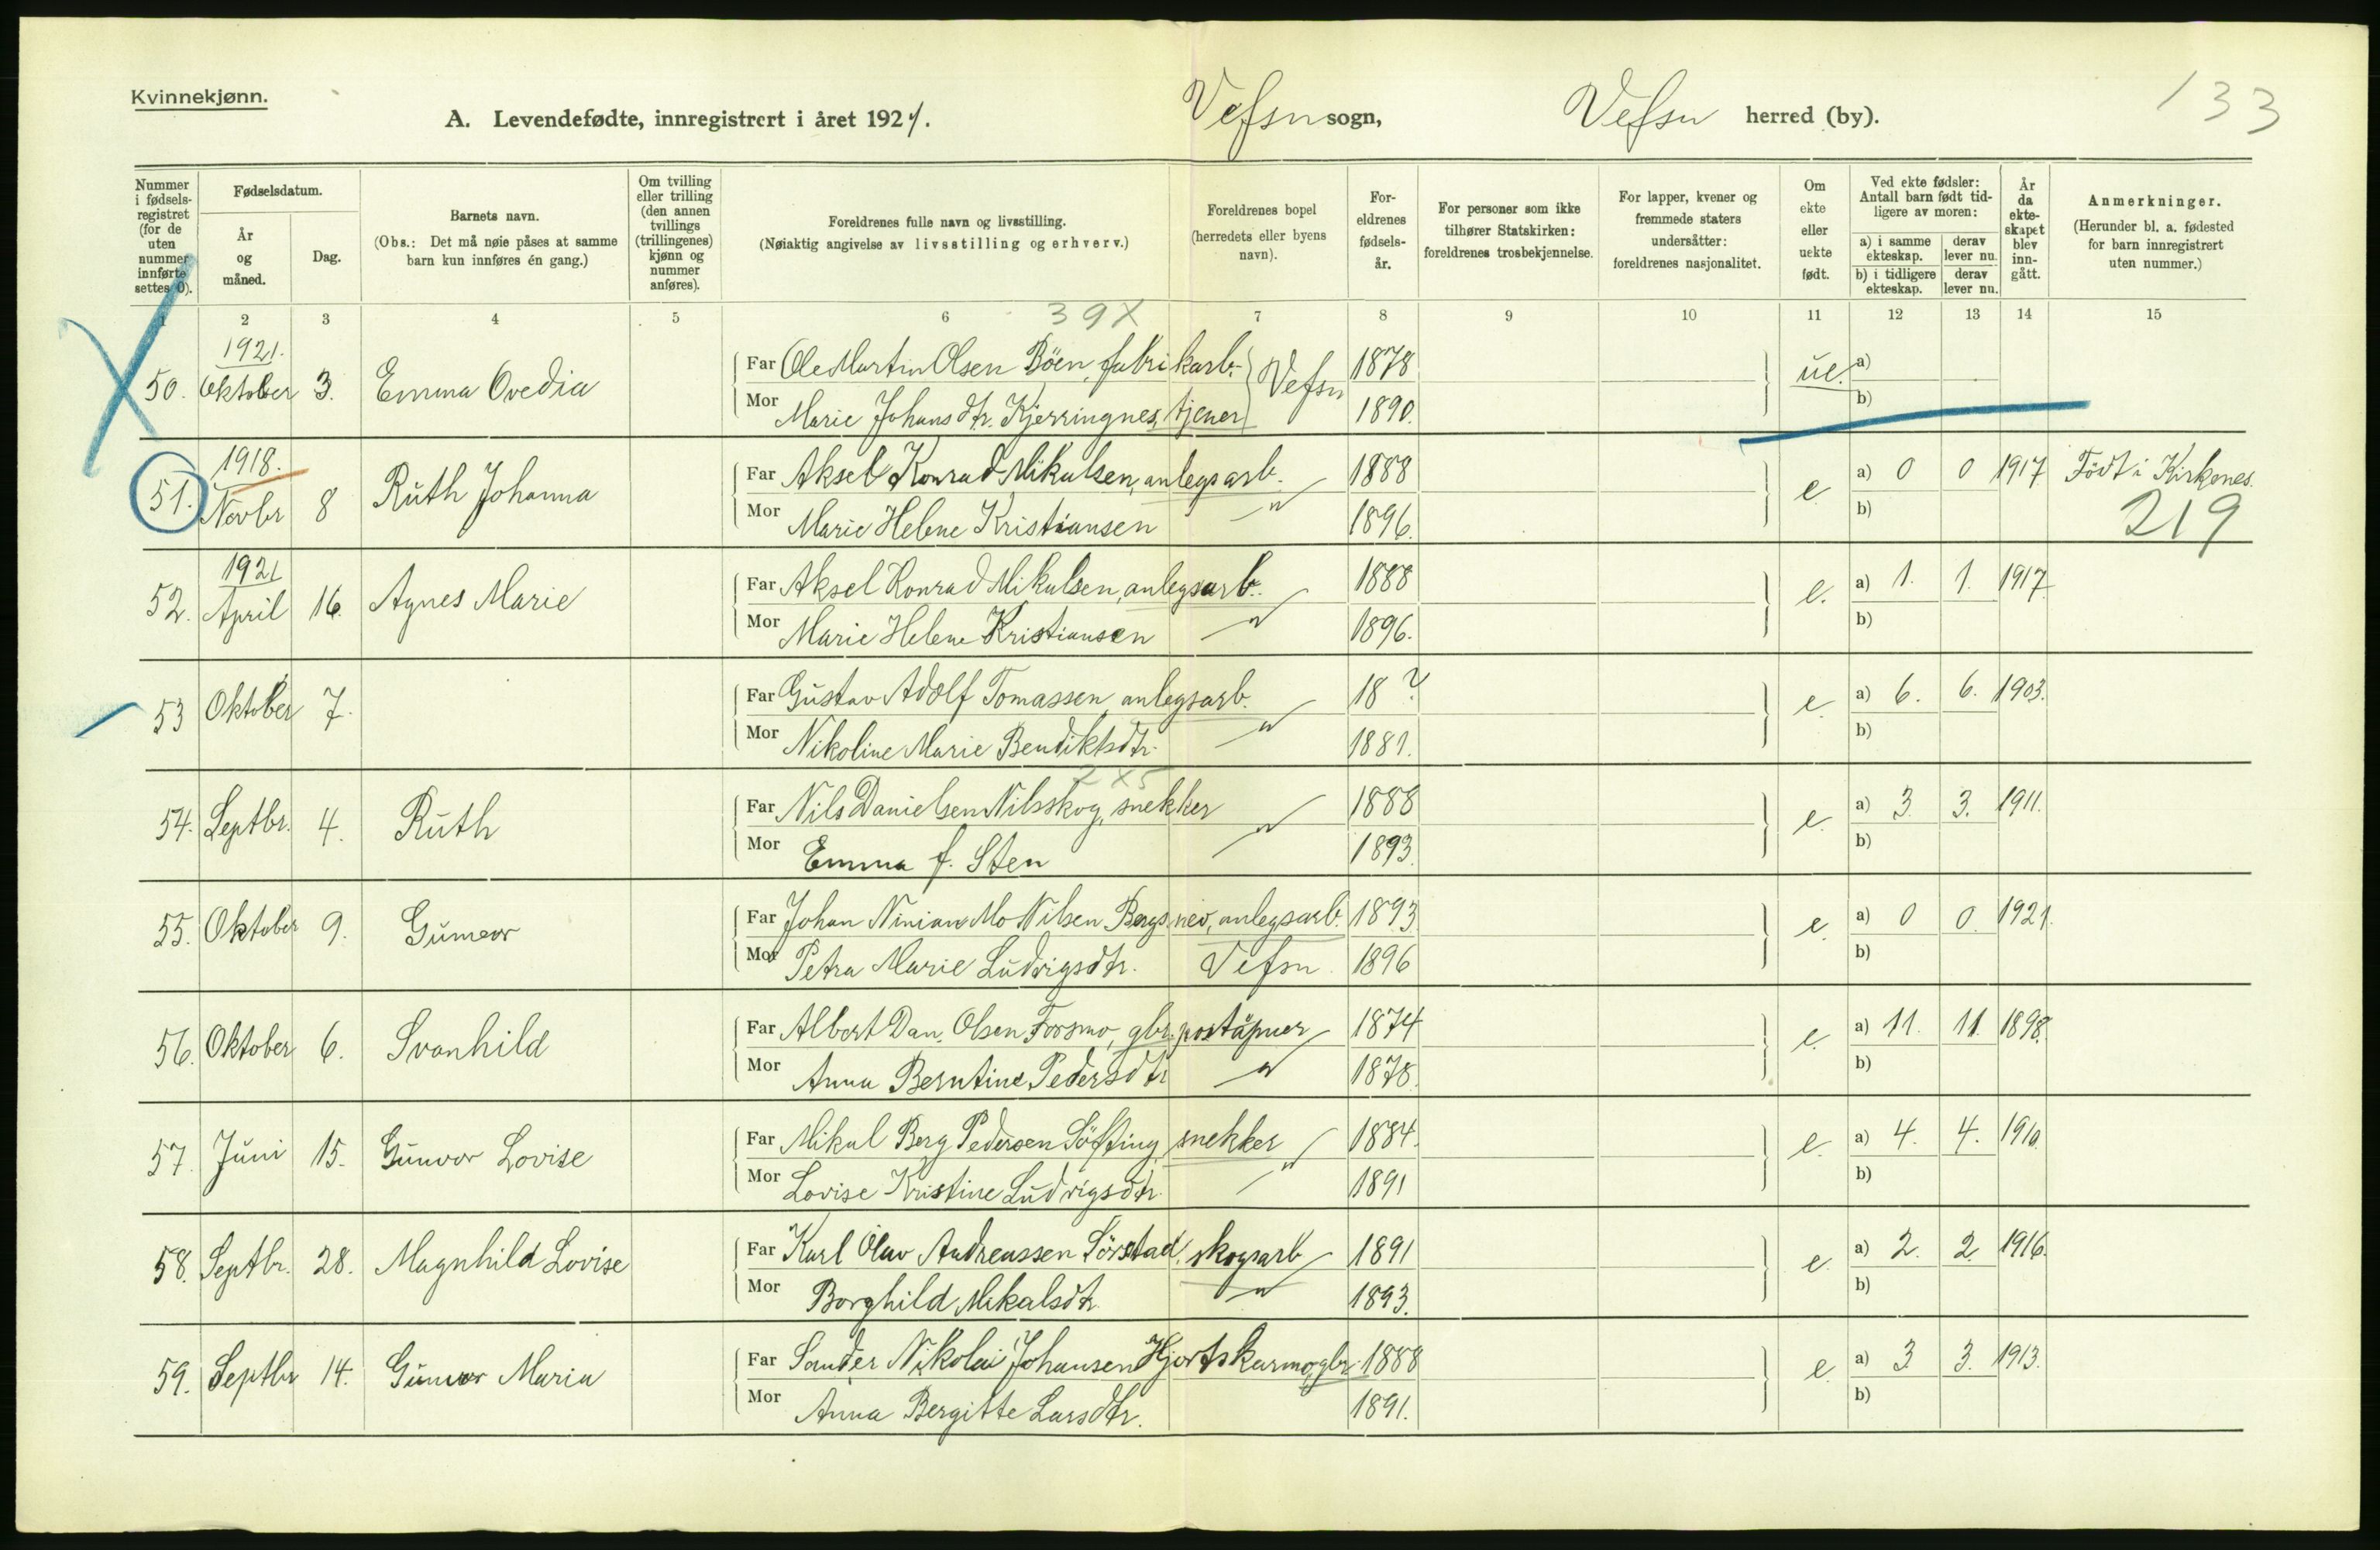 Kvinnekjønn.
A. Levendefødte, innregistrert i året 1921.
Vefsn sogn,
Vefsn herred (by).
133
Nummer i fødselsregistret (for de uten nummer innførte settes 0).
Fødselsdatum.
År og måned.
Dag.
Barnets navn.
(Obs.: Det må nøie påses at samme barn kun innføres én gang.)
Om tvilling eller trilling (den annen tvillings (trillingenes) kjønn og nummer anføres).
Foreldrenes fulle navn og livsstilling.
(Nøiaktig angivelse av livsstilling og erhverv.)
Foreldrenes bopel (herredets eller byens navn).
Foreldrenes fødselsår.
For personer som ikke tilhører Statskirken: foreldrenes trosbekjennelse.
For lapper, kvener og fremmede staters undersåtter: foreldrenes nasjonalitet.
Om ekte eller uekte født.
Ved ekte fødsler: Antall barn født tidligere av moren:
a) i samme ekteskap. derav lever nu.
b) i tidligere ekteskap. derav lever nu.
År da ekteskapet blev inngått.
Anmerkninger.
(Herunder bl. a. fødested for barn innregistrert uten nummer.)
1 2 3 4 5 6 7 8 9 10 11 12 13 14 15
39 X
1921.
50. Oktober 3. Emma Ovedia Far Ole Martin Olsen Böen, fabrikarb. Vefsn 1878 ue. a)
Mor Marie Johansdtr. Kjerringnes, tjener 1890. b)
1918.
51. Novbr 8 Ruth Johanna Far Aksel Konrad Mikalsen, anlegsarb. 1888 e a) 0 0 1917 Födt i Kirkenes.
Mor Marie Helene Kristiansen " 1896. b) 219
1921
52. April 16. Agnes Marie Far Aksel Konrad Mikalsen, anlegsarb. 1888 e. a) 1. 1. 1917.
Mor Marie Helene Kristiansen " 1896. b)
53 Oktober 7. Far Gustav Adolf Tomassen, anlegsarb. 18 ? e. a) 6. 6. 1903.
Mor Nikoline Marie Bendiktsdtr. " 1881. b)
2 X 5
54. Septbr. 4. Ruth Far Nils Danielsen Nilsskog, snekker 1888 e. a) 3 3. 1911.
Mor Emma f. Sten " 1893. b)
55. Oktober 9. Gunvor Far Johan Ninian Mo Nilsen anlegsarb. 1893 e. a) 0 0. 1921.
Mor Petra Marie Ludvigsdtr. Vefsn. 1896 b)
56. Oktober 6. Svanhild Far Albert Dan. Olsen Forsmo, gbr. poståpner 1874 e. a) 11. 11. 1898.
Mor Anna Berntine Pedersdtr " 1878. b)
57. Juni 15. Gunvor Lovise Far Mikal Berg Pedersen Söfting, snekker 1884. e. a) 4. 4. 1910.
Mor Lovise Kristine Ludvigsdtr. " 1891 b)
58. Septbr. 28. Magnhild Lovise Far Karl Olav Andreassen Sörstad, skogsarb 1891 e. a) 2. 2. 1916.
Mor Borghild Mikalsdtr. " 1893. b)
59. Septbr 14. Gunvor Maria Far Sander Nikolai Johansen Hjortskarmo, gbr. 1888 e. a) 3 3. 1913.
Mor Anna Bergitte Larsdtr. 1891. b)